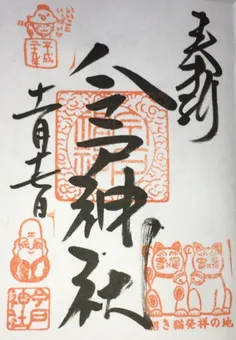 奉拝
今戸神社
平成
十一月十七日
今戸神社
招き猫発祥の地